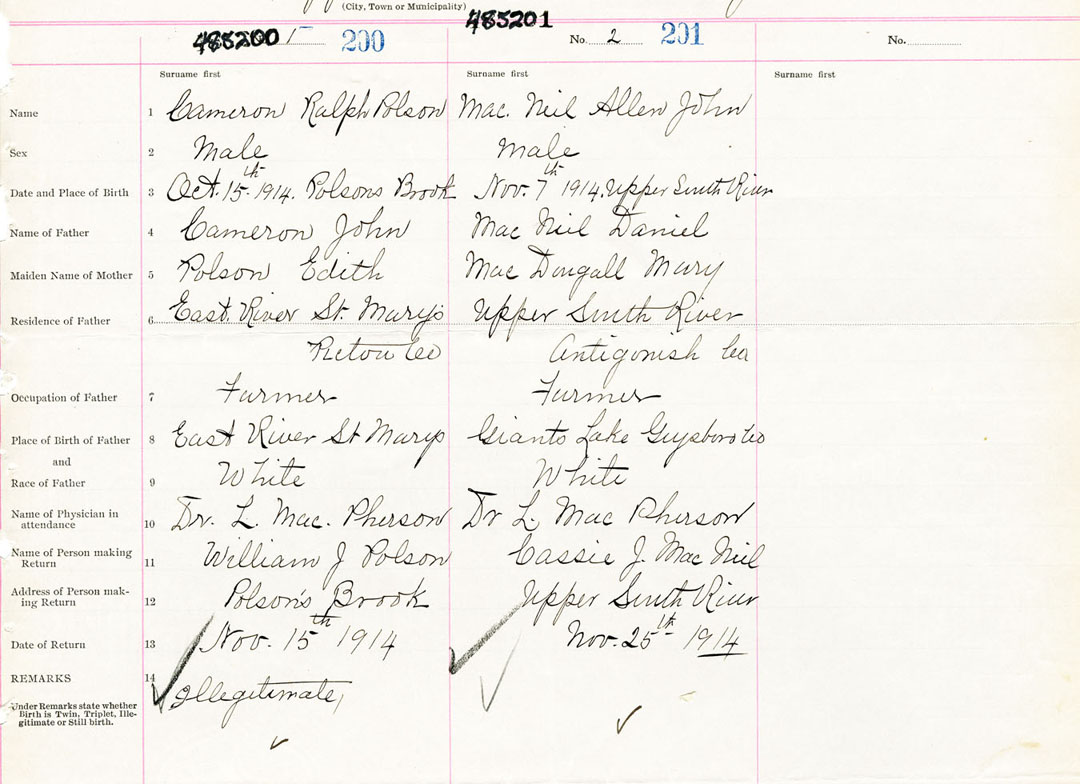 (City, Town or Municipality)
485200 1 200
485201
No. 2 201
No.
Surname first
Surname first
Surname first
Name 1 Cameron Ralph Polson Mac. Neil Allen John
Sex 2 Male Male
Date and Place of Birth 3 Oct. 15th 1914. Polsons Brook Nov. 7th 1914. Upper South River
Name of Father 4 Cameron John Mac Neil Daniel
Maiden Name of Mother 5 Polson Edith Mac Dougall Mary
Residence of Father 6 East River St. Marys Upper South River
Pictou Co Antigonish Co
Occupation of Father 7 Farmer Farmer
Place of Birth of Father 8 East River St Marys Giants Lake Guysboro Co
and
Race of Father 9 White White
Name of Physician in
attendance 10 Dr. L. Mac. Pherson Dr L. Mac Pherson
Name of Person making
Return 11 William J Polson Cassie J. Mac Neil
Address of Person mak-
ing Return 12 Polson's Brook Upper South River
Date of Return 13 Nov. 15th 1914 Nov. 25th 1914
REMARKS 14 Illegitimate,
Under Remarks state whether
Birth is Twin, Triplet, Ille-
gitimate or Still birth.